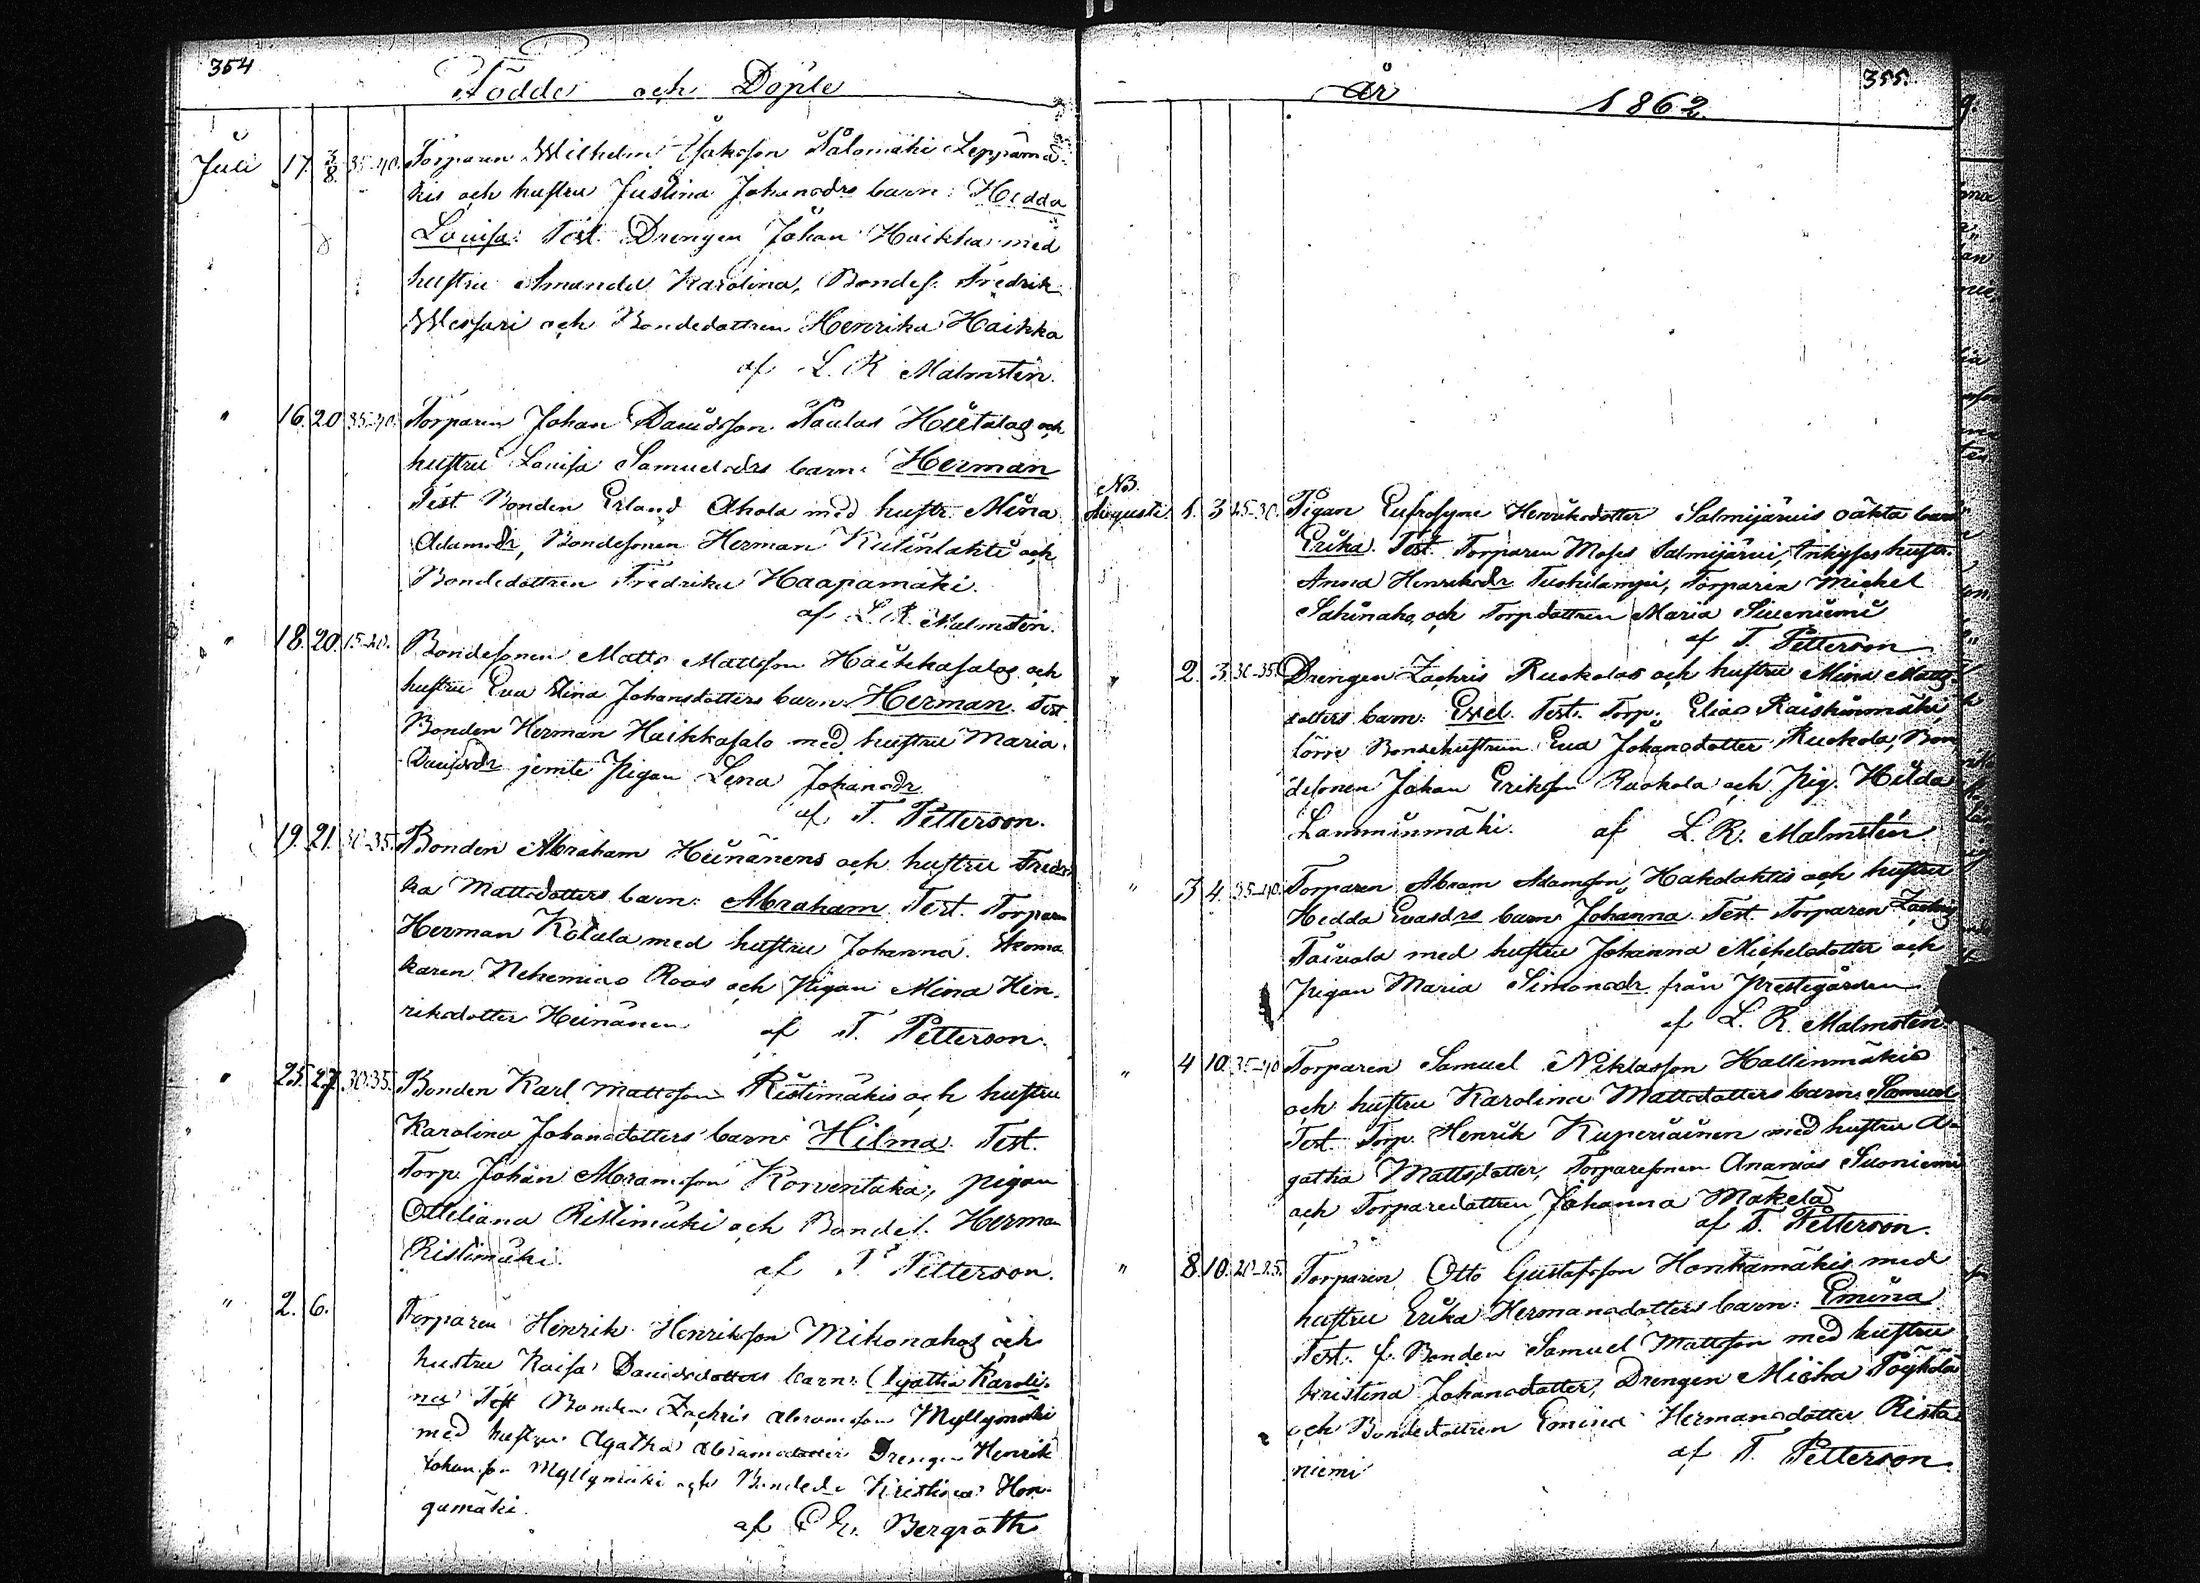 354
Födde och Döpte
Juli 17. 3/8 35-40. Torparen Wilhelm Isaksson Salomäki Leppämä-
kis och hustru Justina Johansdrs barn: Hedda
Lovisa: Test. Drengen Johan Haikka med
hustru Amanda Karolina, Bondes. Fredrik
Wessari och Bondedottren Henrika Haikka
af L. R Malmsten.
" 16. 20. 35-40. Torparen Johan Davidsson Paulas Hietalas och
hustru Lovisa Samuelsdrs barn: Herman
Test. Bonden Erland Ahola med hustr. Mina
Adamsdr, Bondesonen Herman och
Bondedottren Fredrika Haapamäki.
af L. R. Malmsten.
" 18. 20. 15-20. Bondesonen Matts Mattsson Haikkasalos och
hustru Eva Stina Johansdotters barn: Herman. Test.
Bonden Herman Haikkasalo med hustru Maria
Davidsdr jemte pigan Lena Johansdr
af T. Petterson.
19. 21. 30-35. Bonden Abraham Heinänens och hustru Fredri
ka Mattsdotters barn: Abraham. Test. Torparen
Herman Kotala med hustru Johanna. Skoma-
karen Nehemias Roos och Pigan Mina Hen-
riksdotter Heinänen af T. Petterson.
" 25. 27. 30.35. Bonden Karl Mattsson Ristimäkis och hustru
Karolina Johansdotters barn: Hilma. Test.
Torp. Johan Abramsson Korventaka, pigan
Otteliana Ristimäki och Bondes. Herman
Ristimäki. af T. Petterson.
" 2. 6. Torparen Henrik Henriksson Mikonahos och
hustru Kaisa Davidsdotters barn: Agatha Karoli-
na Test Bonden Zachris Abramsson Myllymäki
med hustru Agatha Abramsdotter Drengen Henrik
Johansson Myllymäki och Bondedr Kristina Hon-
gamäki.
af Bergroth
År 1862.
355.
NB.
Augusti 1. 3. 25-30. Pigan Eufrosyne Henriksdotter Salmijärvis oäkta barn
Erika. Test. Torparen Moses Salmijärvi, Inhyses hustr.
Anna Henriksdr Tuohilampi, Torparen Michel
Sahinaho, och Torpdottren Maria Siveniemi
af T. Petterson
" 2. 3. 30-35. Drengen Zachris Ruokolas och hustru Mina Matts-
dotters barn: Exel. Test. Torp. Elias Raiskinmäki,
Bondehustrun Eva Johansdotter Ruokola, Bon
desonen Johan Eriksson Ruokola och Pig. Hilda
Lamminmäki. af L. R. Malmstén
" 3. 4. 35-40. Torparen Abram Adamsson, Hakolahtis och hustru
Hedda Evasdrs barn: Johanna. Test. Torparen Zachris
Taivala med hustru Johanna Michelsdotter och
Pigan Maria Simonsdr från Prestegården
af L. R. Malmsten.
" 4 10. 35-40 Torparen Samuel Niklasson Hallinmäkis
och hustru Karolina Mattsdotters barn: Samuel
Test. Torp. Henrik Kuperiäinen med hustru A-
gatha Mattsdotter, Torparesonen Ananias Suoniemi
och Torparedottren Johanna Mäkelä
af T. Petterson.
" 8. 10. 20-25. Torparen Otto Gustafsson Honkamäkis med
hustru Erika Hermansdotters barn: Emina
Test. f. Bonden Samuel Mattsson med hustru
Kristina Johansdotter, Drengen Micha Pöyhölä
och Bondedottren Emina Hermansdotter Rista
niemi af T. Petterson.